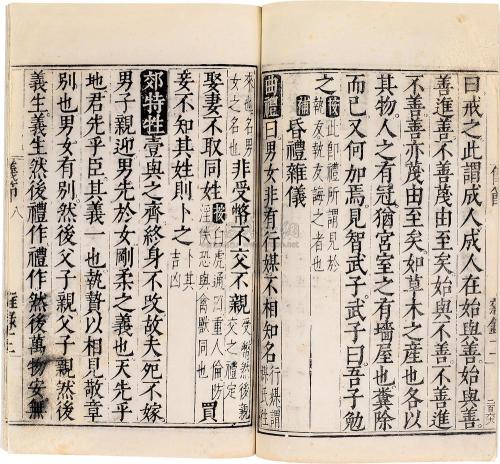 曰戒之此謂成人成人在始與善。
善進善不善蔑由至矣始與不善不善進
不善善亦蔑由至矣如草木之產也各以
其物人之有冠猶宮室之有墻屋也糞除
而已又何加焉見智武子武子曰吾子勉
之按此即禮所謂見於
執友執友誨之者也
補昏禮雜儀
曲禮曰男女非有行媒不相知名行媒謂
媒氏往
來也名男
女之名也非受幣不交不親受幣然後親
交之禮定
娶妻不取同姓按白虎通曰重人倫防
淫佚恐與禽獸同也買
妾不知其姓則卜之卜其
吉凶
郊特牲壹與之齊終身不改故夫死不嫁
男子親迎男先於女剛柔之義也天先乎
地君先乎臣其義一也執贄以相見敬章
別也男女有別然後父子親父子親然後
義生義生然後禮作禮作然後萬物安無